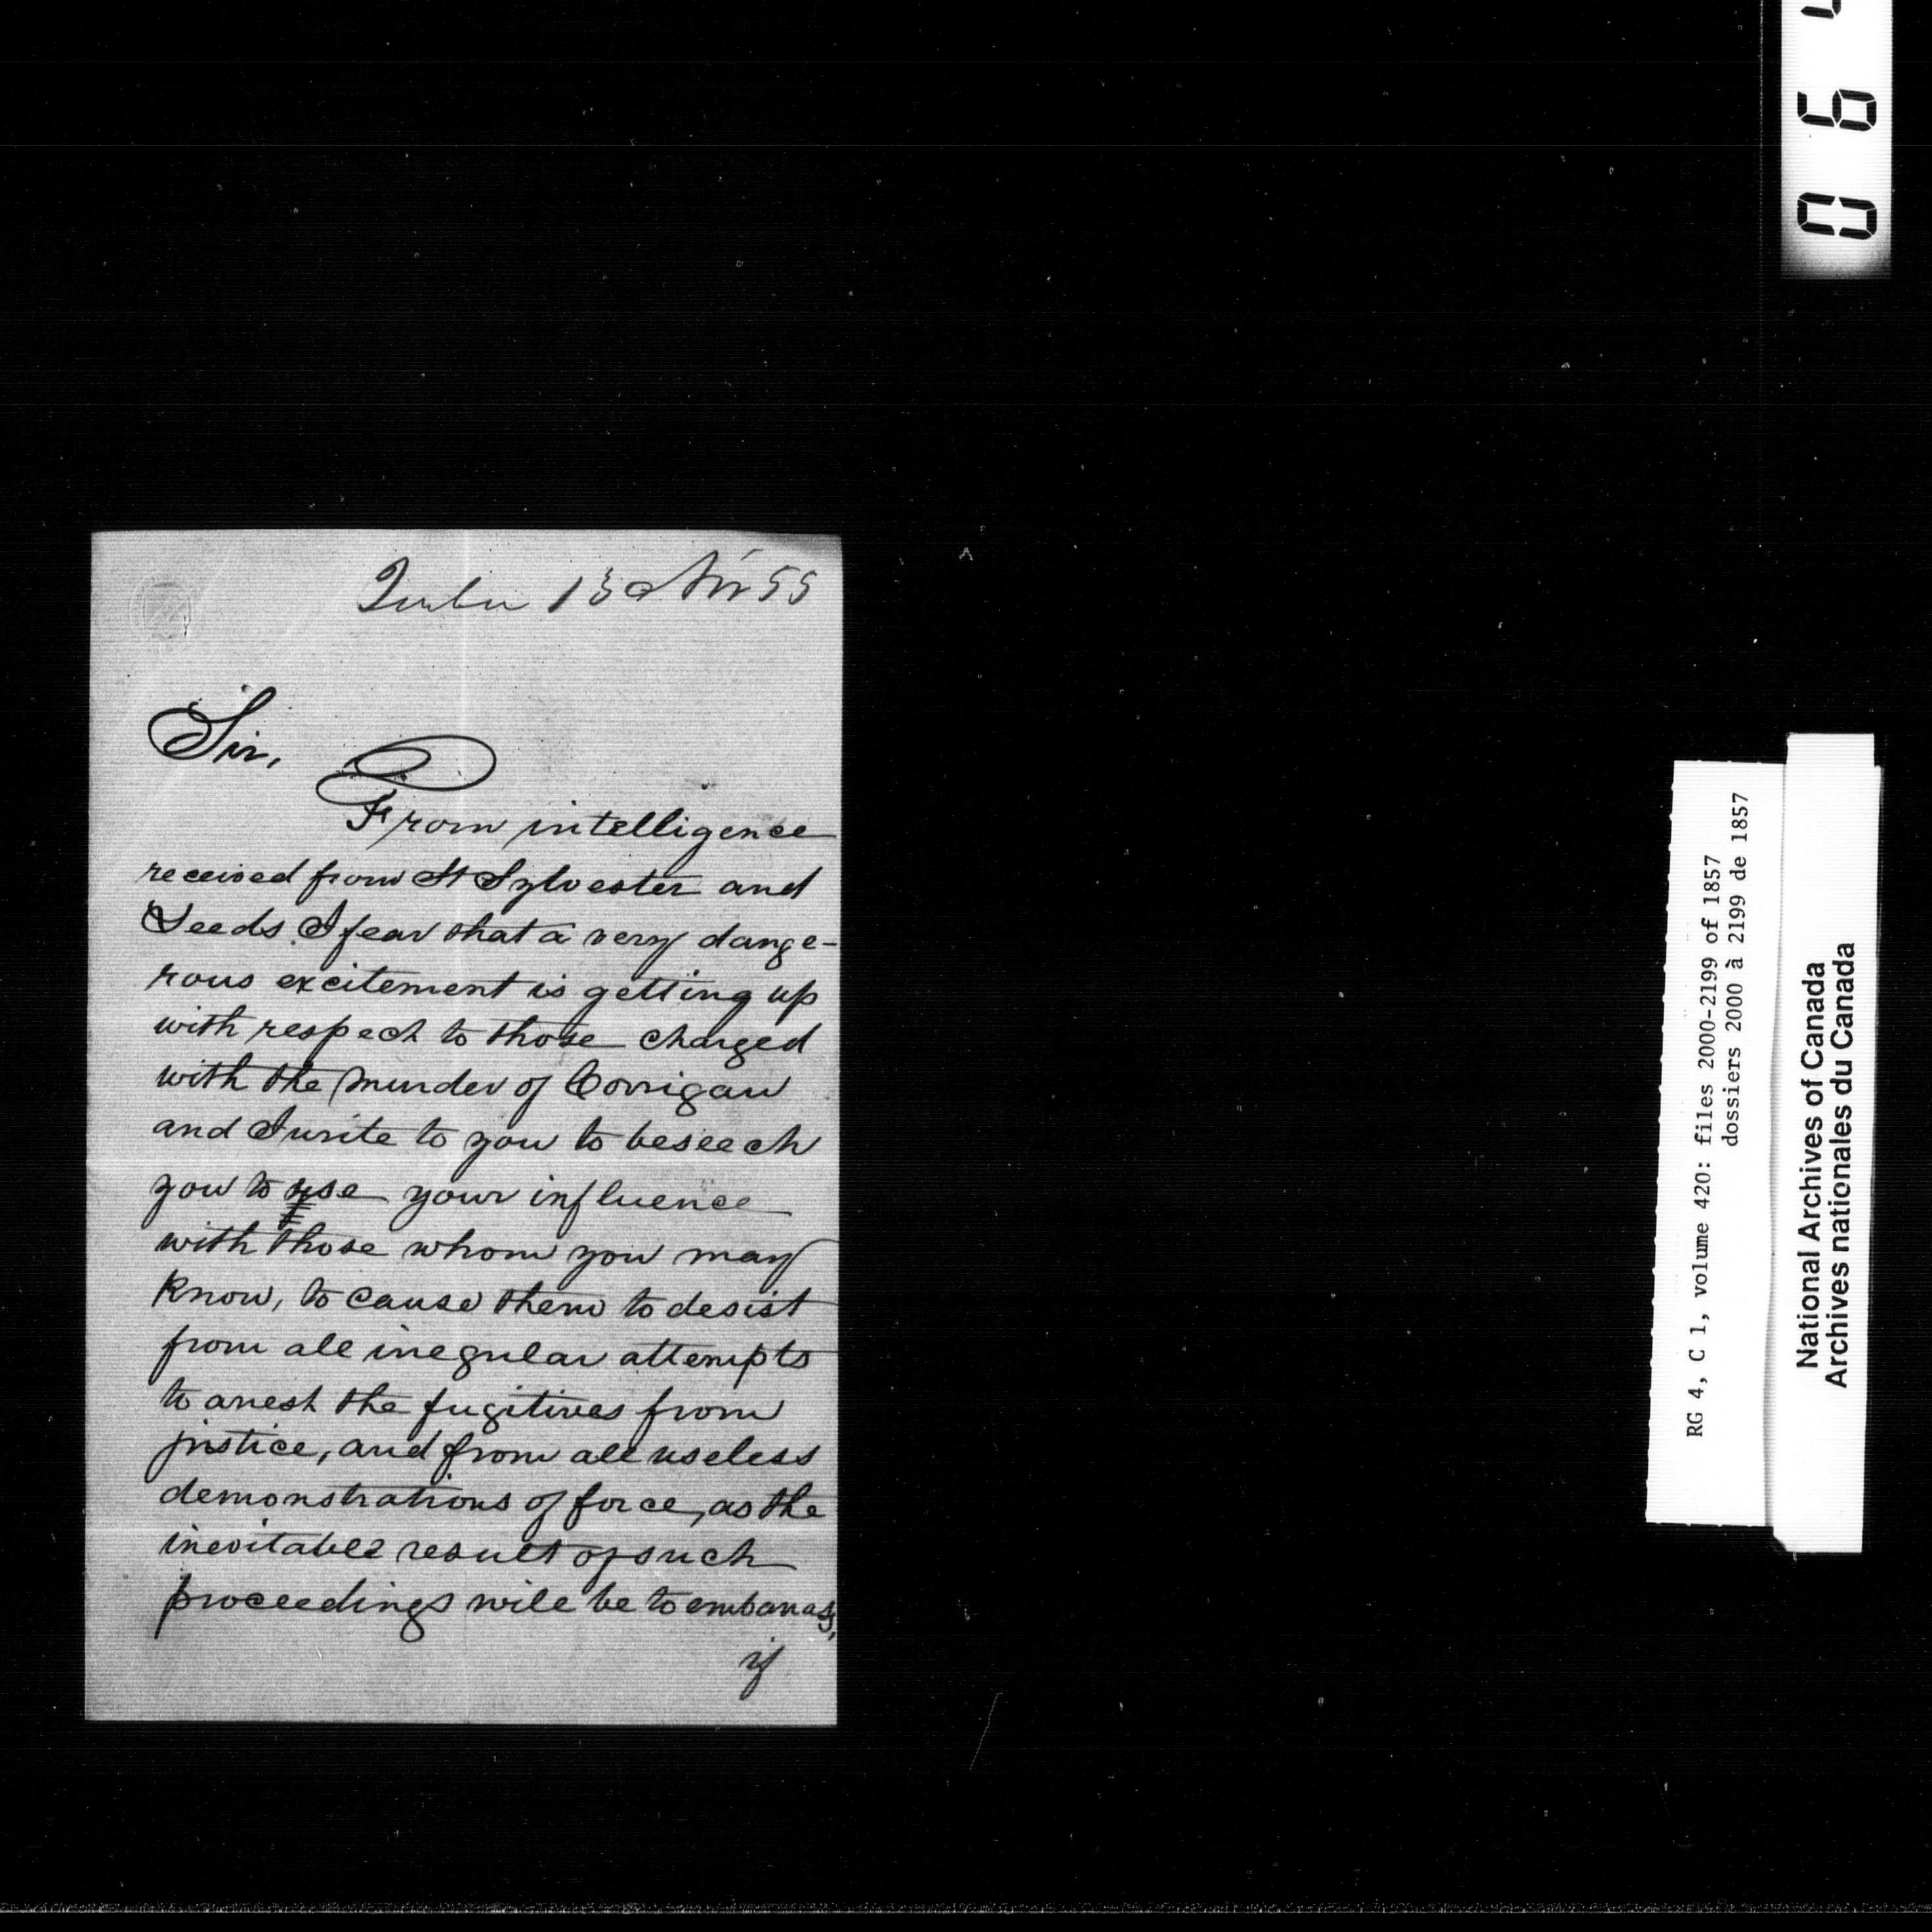 13 Nov 55
Sir,
From intelligence
received from St Sylvester and
Leeds I fear that a very dange-
rous excitement is getting up
with respect to those charged
with the murder of Corrigan
and I write to you to beseech
you to use your influence
with those whom you may
know, to cause them to desist
from all irregular attempts
to arrest the fugitives from
justice, and from all useless
demonstrations of force, as the
inevitable result of such
proceedings will be to embarrass,
if
0 6
RG 4, C 1, volume 420: files 2000-2199 of 1857
dossiers 2000 à 2199 de 1857
National Archives of Canada
Archives nationales du Canada